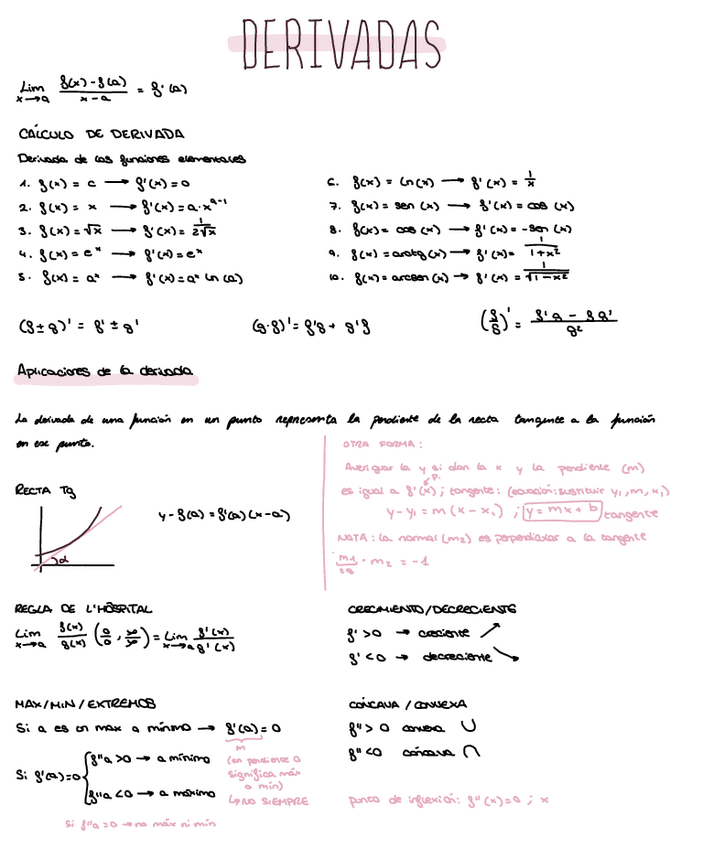 DERIVADAS
Lim x→a f(x)-f(a) / x-a = f'(a)
CÁLCULO DE DERIVADA
Derivada de las funciones elementales
1. f(x) = c → f'(x) = 0
2. f(x) = x → f'(x) = a·x^a-1
3. f(x) = √x → f'(x) = 1 / 2√x
4. f(x) = e^x → f'(x) = e^x
5. f(x) = a^x → f'(x) = a^x ln (a)
6. f(x) = ln(x) → f'(x) = 1/x
7. f(x) = sen (x) → f'(x) = cos (x)
8. f(x) = cos (x) → f'(x) = -sen (x)
9. f(x) = arctg (x) → f'(x) = 1 / 1+x²
10. f(x) = arcsen (x) → f'(x) = 1 / √1-x²
(f±g)' = f' ± g'
(g·f)' = f'g + g'f
(f/g)' = f'g - fg' / g²
Aplicaciones de la derivada
La derivada de una función en un punto representa la pendiente de la recta tangente a la función
en ese punto.
RECTA Tg
α
y-f(a) = f'(a)(x-a)
OTRA FORMA:
Averiguar la y si dan la x y la pendiente (m)
es igual a f'(x); tangente: (ecuación: sustituir y₁, m, x₁)
y-y₁ = m (x-x₁) ; y = mx + b tangente
NOTA: la normal (m₂) es perpendicular a la tangente
m1 / tg · m₂ = -1
REGLA DE L'HÔSPITAL
Lim x→a f(x) / g(x) (0/0, ∞/∞) = Lim x→a f'(x) / g'(x)
CRECIMIENTO/DECRECIENTE
f' >0 → creciente ↗
f' <0 → decreciente ↘
MAX/MIN/EXTREMOS
Si a es un max o mínmo → f'(a) = 0
m
(en pendiente 0
significa máx
o mín)
↳NO SIEMPRE
Si f'(a)=0 { f''a >0 → a mínimo
f''a <0 → a máximo
Si f''a = 0 → no máx ni mín
CÓNCAVA / CONVEXA
f'' > 0 convexa ∪
f'' <0 cóncava ∩
punto de inflexión: f''(x)=0 ; x